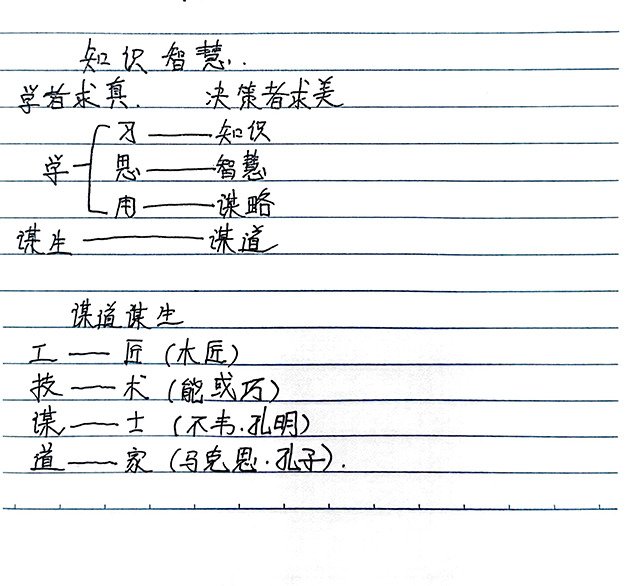 知识 智慧..
学者求真. 决策者求美
习——知识
学 思——智慧
用——谋略
谋生——谋道
谋道谋生
工——匠(木匠)
技——术(能或巧)
谋——士(不韦.孔明)
道——家(马克思.孔子).